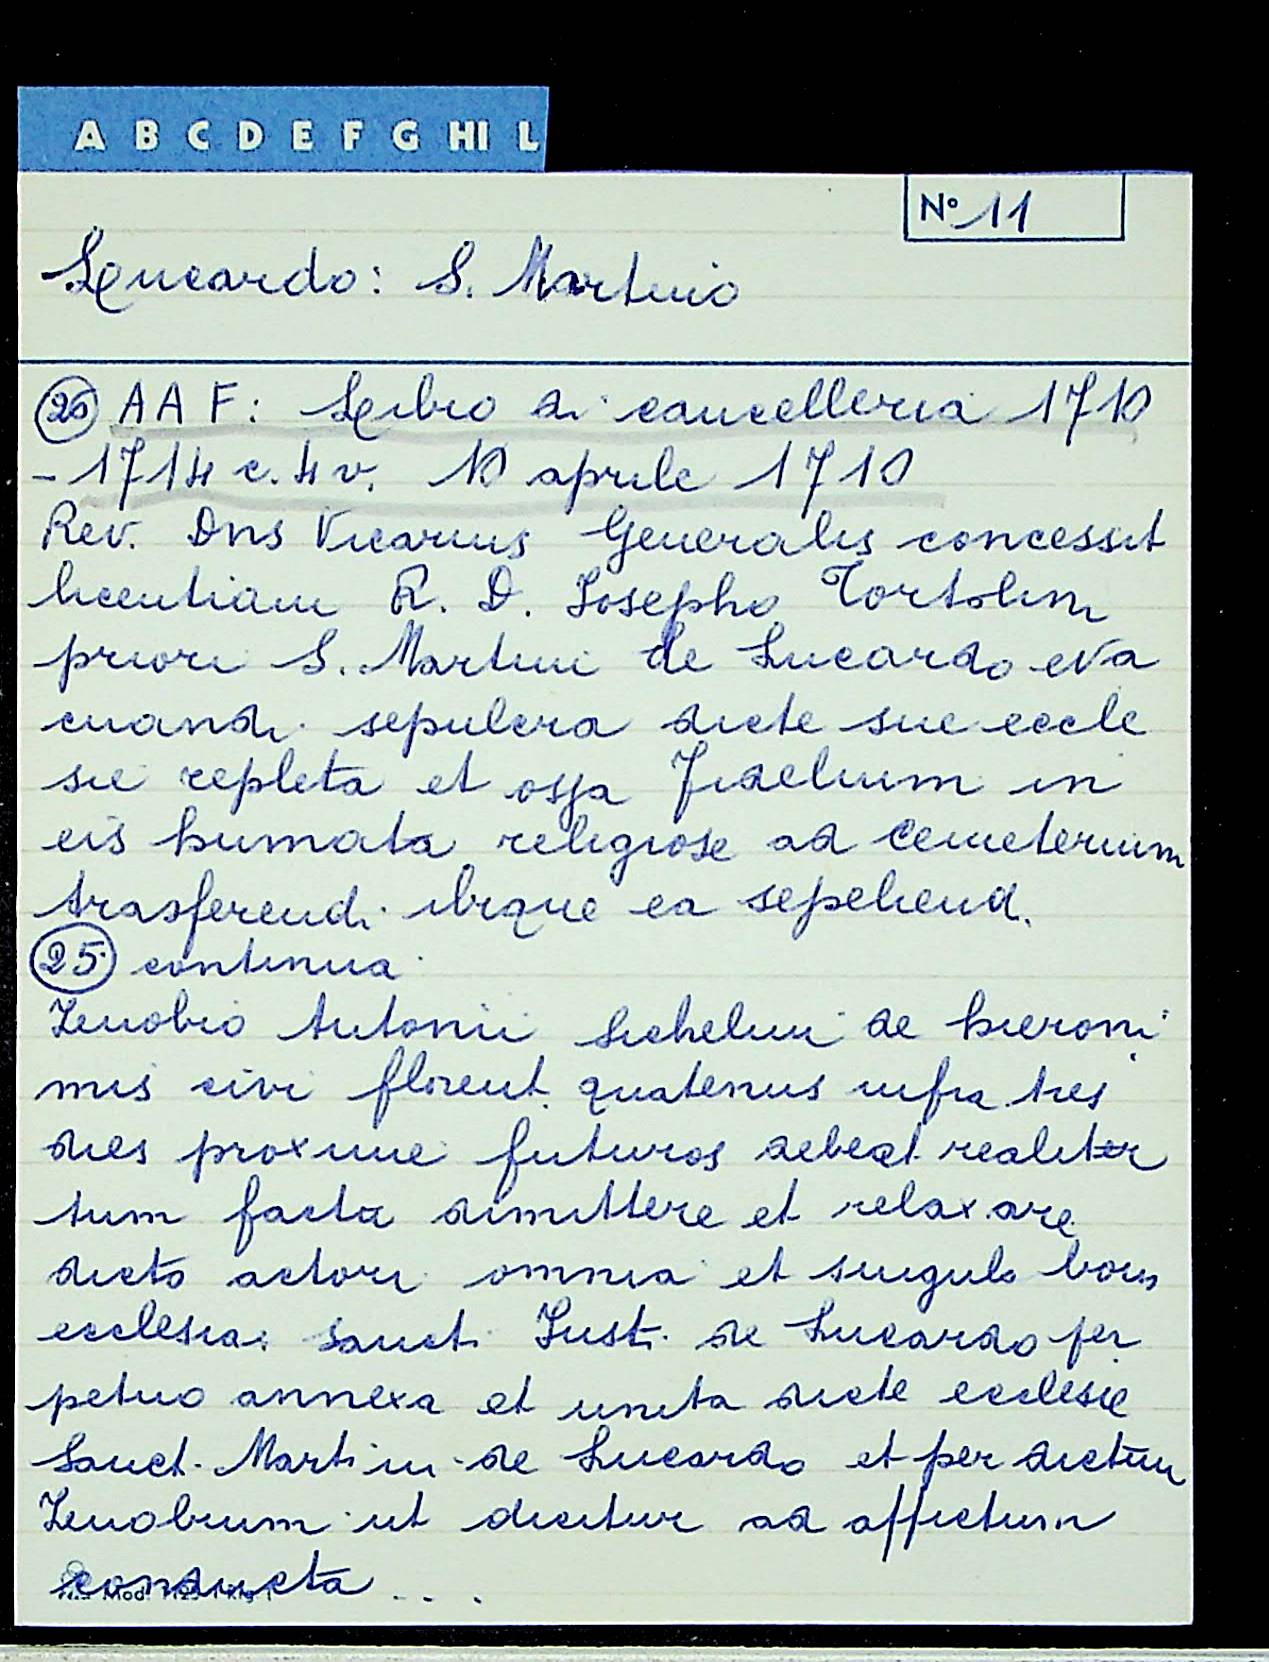 A B C D E F G HI L
N° 11
Lucardo: S. Martino
26 AAF: Libro di cancelleria 1710
- 1714 c. 4 v. 10 aprile 1710
Rev. Dns Vicarius Generalis concessit
licentiam R. D. Iosepho Tortolini
priori S. Martini de Lucardo eva
cuandi sepulcra dicte sue eccle
sie repleta et ossa fidelium in
eis humata religiose ad Cemeterium
trasferendi ibique ea sepeliend.
25 continua
Zenobio Antonii Sichelini de hieroni
mis civi florent. quatenus infra tres
dies proxime futuros debeat realiter
tum facta dimittere et relaxare
dicto actori omnia et singula bona
ecclesiae Sancti Iusti de Lucardo per
petuo annexa et unita dicte ecclesie
Sancti Martini de Lucardo et per dictum
Zenobium ut dicitur ad affictum
conducta ...